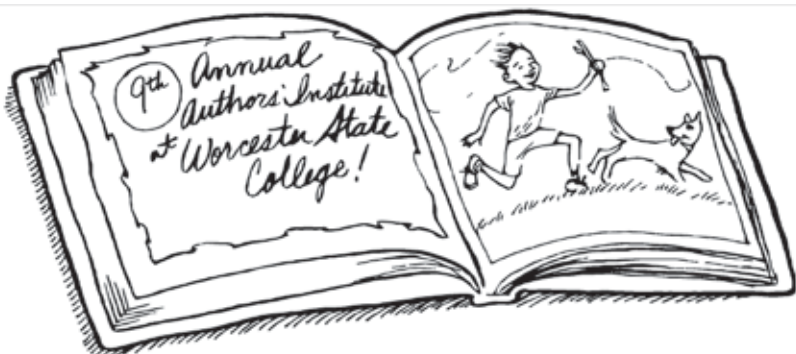 9th Annual
Authors' Institute
at Worcester State
College!